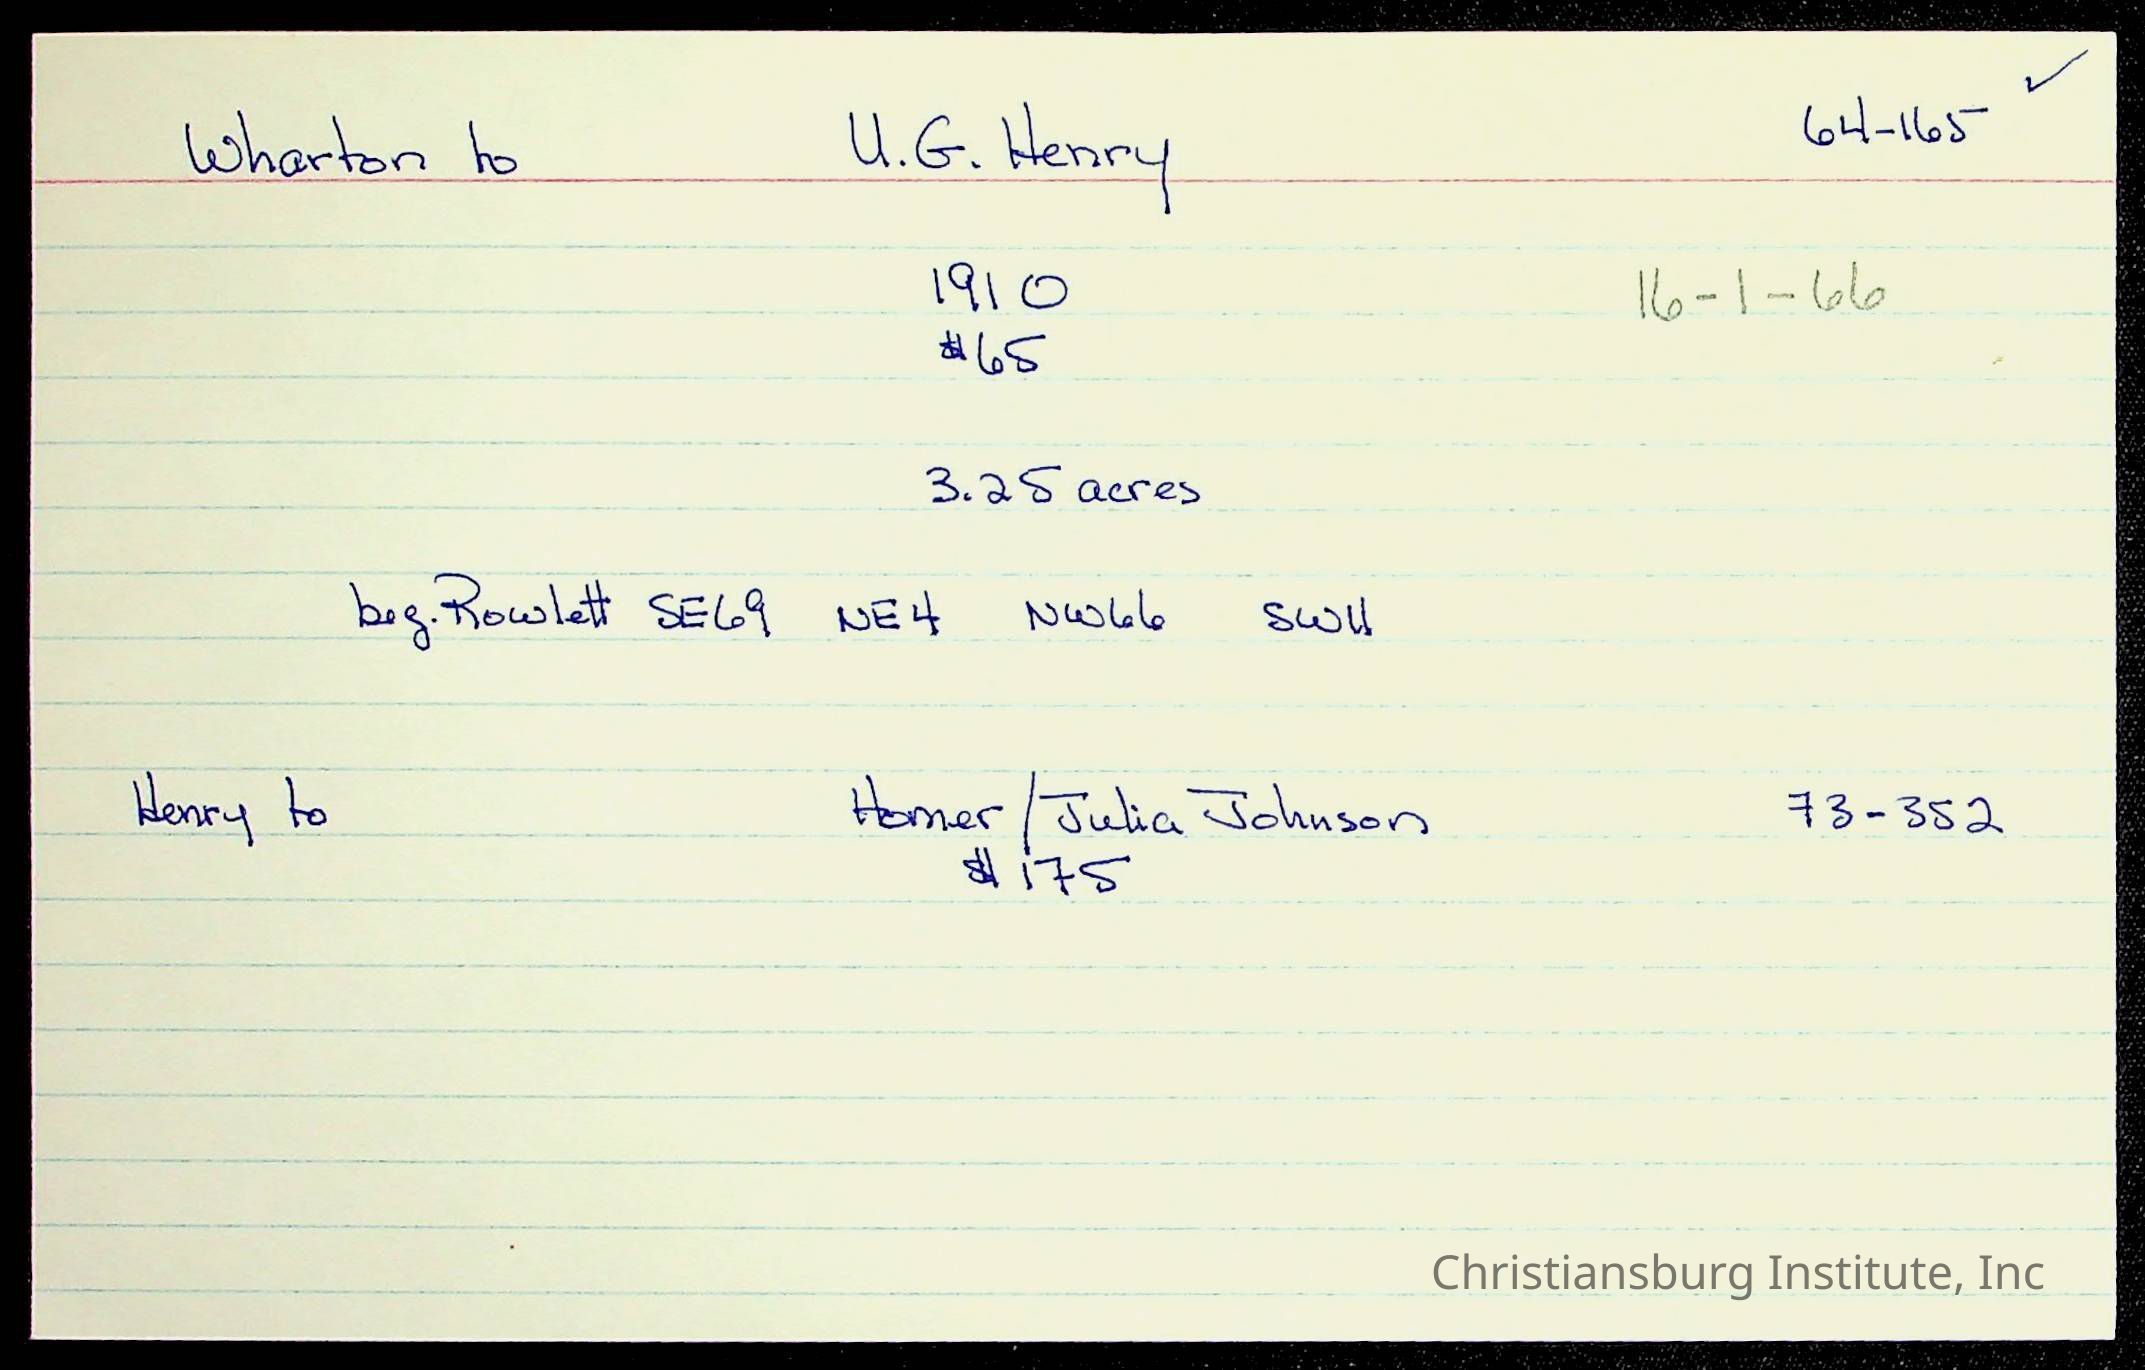 Wharton to U.G. Henry 64-165 ✓
1910 16-1-66
$65
3.25 acres
beg. Rowlett SE69 NE4 NW66 SW11
Henry to Homer/Julia Johnson 73-352
$175
Christiansburg Institute, Inc